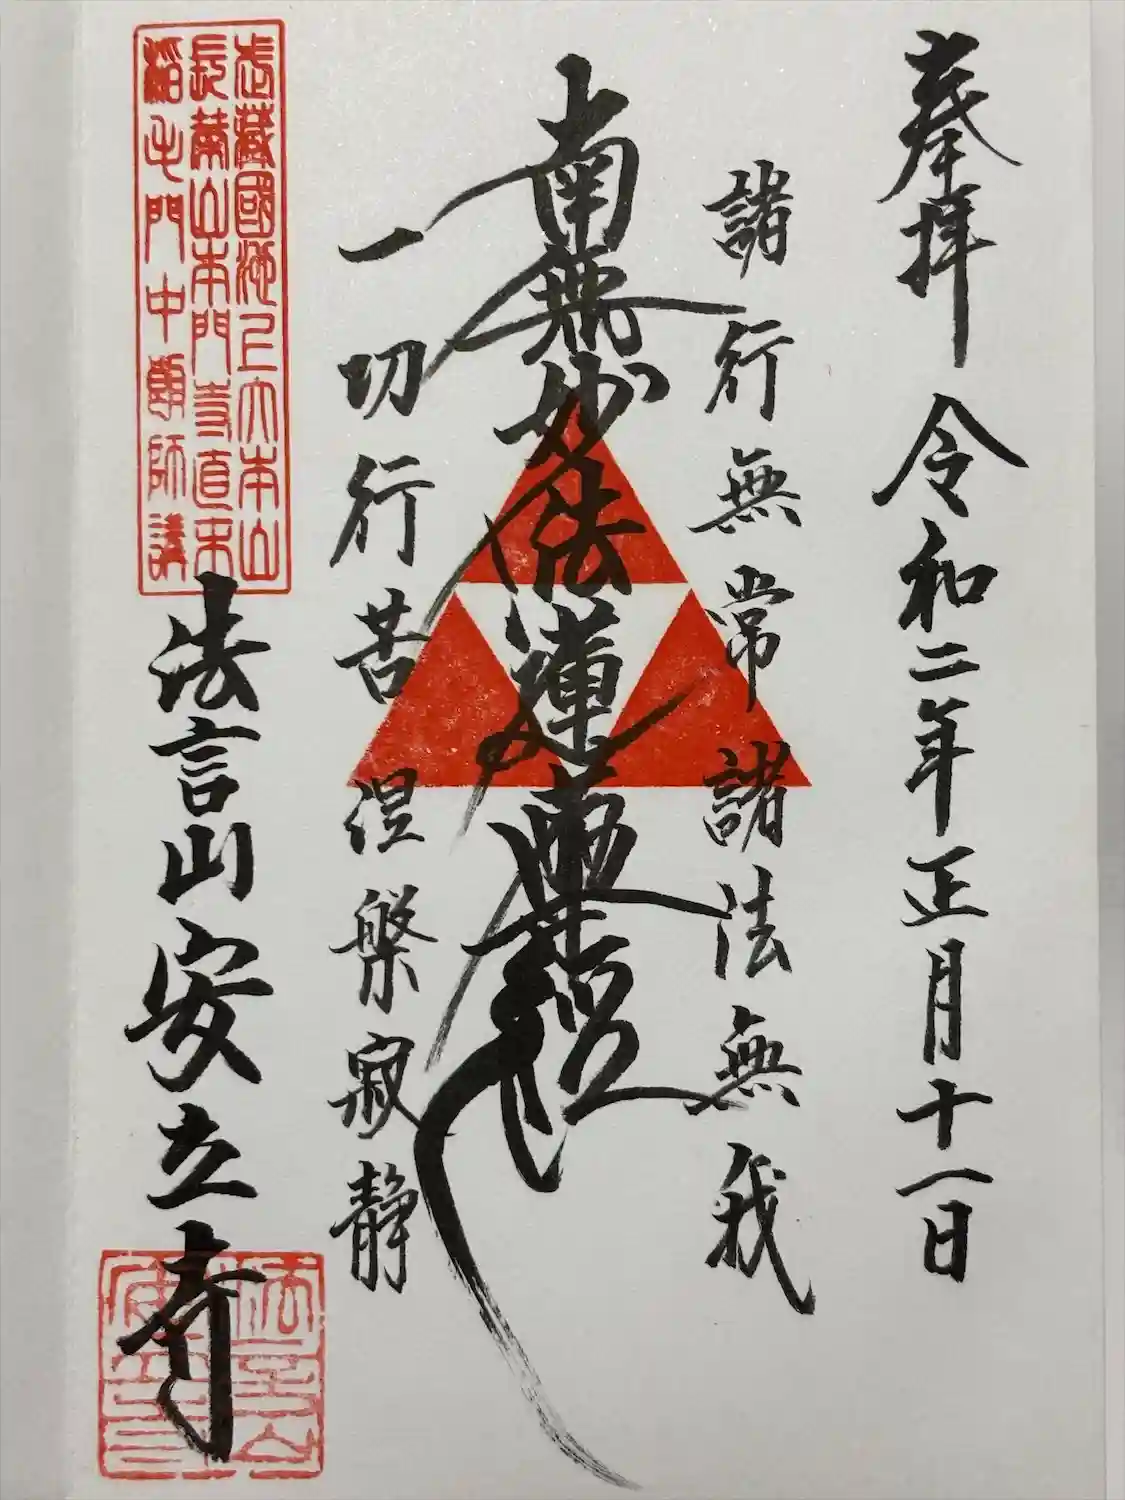 奉拝 令和二年正月十一日
諸行無常 諸法無我
南無妙法蓮華経
一切行苦 涅槃寂静
武藏國池上大本山
長榮山本門寺直末
稲毛門中國師講
法言山安立寺